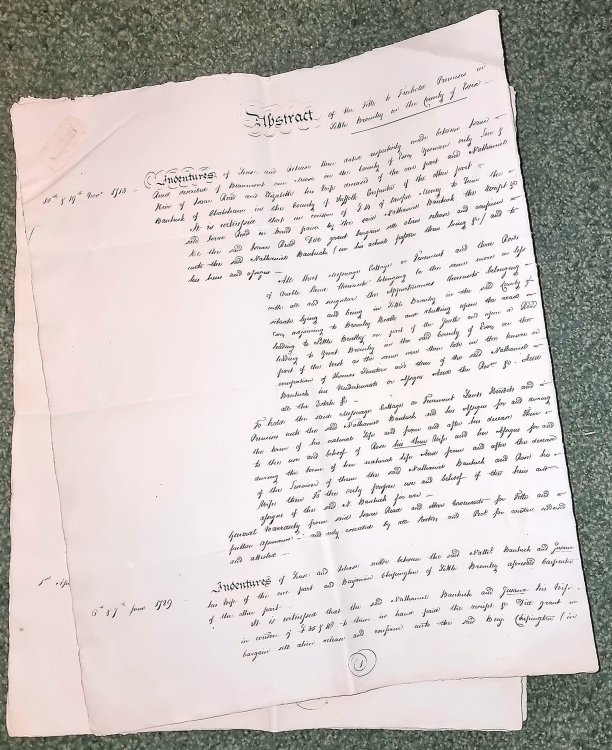 Abstract of the Title to Freehold Premises in
Little Bromley in the County of Essex
18th & 19th Novr 1713 – Indentures of Lease and Release then dated respectively made between Isaac
Read of Beaumont in the County of Essex Yeoman only Son &
Heir of Isaac Read and Elizabeth his Wife deceased of the one part and Nathaniel
Bantock of in the County of Suffolk Carpenter of the other part –
It is witnessed that in conson of £ of lawful Money to him the
said Isaac Read in hand paid by the said Nathaniel Bantock the receipt &c
he the said Isaac Read Did grant bargain sell alien release and confirm
unto the said Nathaniel Bantock (in his actual posson then being &c) and to
his heirs and assigns –
All that Messuage Cottage or Tenement and Rood
of Arable Land thereunto belonging to the same more or less
with all and singular the Appurtenances thereunto belonging
situate lying and being in Little Bromley in the said County of
Essex adjoining to Bromley Heath and abutting upon the road
leading to Little Bentley on part of the South and upon a Road
leading to Great Bromley in the said County of Essex on the
part of the West as the same were then late in the tenure or
occupation of Thomas and then of the said Nathaniel
Bantock his Undertenants or Assigns And the Revon &c And
all the Estate &c –
To hold the said Messuage Cottage or Tenement Lands Heredits and
Premises unto the said Nathaniel Bantock and his Assigns for and during
the term of his natural Life and from and after his decease Then
to the use and behoof of his then Wife and her Assigns for and
during the term of her natural life And from and after the decease
of the Survivor of them the said Nathaniel Bantock and his
Wife then To the only proper use and behoof of the heirs and
assigns of the said N. Bantock for ever –
General Warranty from said Isaac Read and other Covenants for Title and
further assurance – and only executed by all Parties and Rect for conson
and attested –
6th & 7th June 1729
Indentures of Lease and Release made between the said Nathl Bantock and Susana
his Wife of the one part and Benjamin of Little Bromley aforesaid Carpenter
of the other part
It is witnessed that the said Nathaniel Bantock and Susana his Wife
in conson of to them in hand paid the receipt &c Did grant
bargain sell alien release and confirm unto the said Benj (in
1